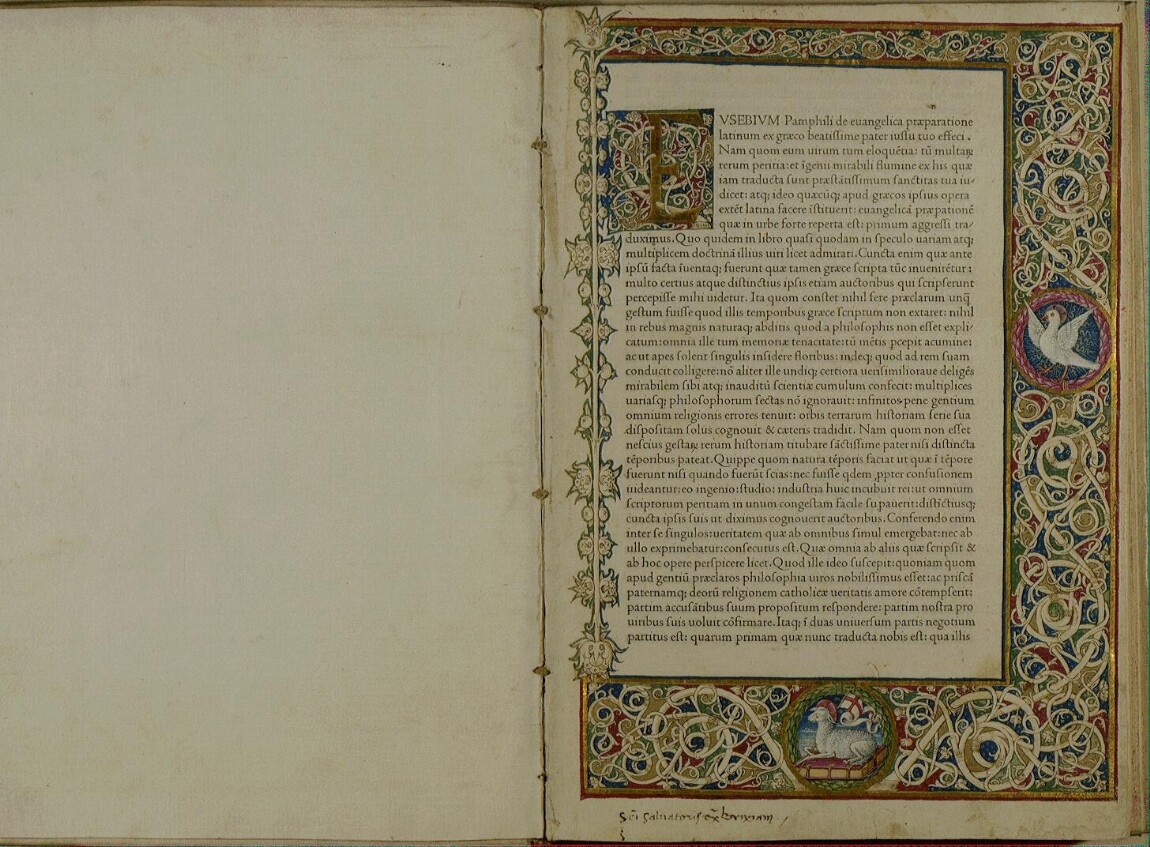 EVSEBIVM Pamphili de euangelica præparatione
latinum ex græco beatissime pater iussu tuo effeci.
Nam quom eum uirum tum eloquētia: tū multaꝝ
rerum peritia: et īgenii mirabili flumine ex his quæ
iam traducta sunt præstātissimum sanctitas tua iu-
dicet: atq; ideo quæcūq; apud græcos ipsius opera
extēt latina facere īstituerit: euangelicā præpationē
quæ in urbe forte reperta est: primum aggressi tra-
duximus. Quo quidem in libro quasi quodam in speculo uariam atq;
multiplicem doctrinā illius uiri licet admirari. Cuncta enim quæ ante
ipsū facta īuentaq; fuerunt quæ tamen græce scripta tūc inuenirētur:
multo certius atque distinctius ipsis etiam auctoribus qui scripserunt
percepisse mihi uidetur. Ita quom constet nihil fere præclarum unq̄
gestum fuisse quod illis temporibus græce scriptum non extaret: nihil
in rebus magnis naturaq; abditis quod a philosophis non esset expli-
catum: omnia ille tum memoriæ tenacitate: tū mētis pcepit acumine:
ac ut apes solent singulis insidere floribus: indeq; quod ad rem suam
conducit colligere: nō aliter ille undiq; certiora uerisimilioraue deligēs
mirabilem sibi atq; inauditū scientiæ cumulum confecit: multiplices
uariasq; philosophorum sectas nō ignorauit: infinitos pene gentium
omnium religionis errores tenuit: orbis terrarum historiam serie sua
dispositam solus cognouit & cæteris tradidit. Nam quom non esset
nescius gestaꝝ rerum historiam titubare sāctissime pater nisi distincta
tēporibus pateat. Quippe quom natura tēporis faciat ut quæ ī tēpore
fuerunt nisi quando fuerūt scias: nec fuisse qdem ,ppter confusionem
uideantur: eo ingenio: studio: industria huic incubuit rei: ut omnium
scriptorum peritiam in unum congestam facile supauerit: distīctiusq;
cuncta ipsis suis ut diximus cognouerit auctoribus. Conferendo enim
inter se singulos: ueritatem quæ ab omnibus simul emergebat: nec ab
ullo exprimebatur: consecutus est. Quæ omnia ab aliis quæ scripsit &
ab hoc opere perspicere licet. Quod ille ideo suscepit: quoniam quom
apud gentiū præclaros philosophia uiros nobilissimus esset: ac priscā
paternamq; deorū religionem catholicæ ueritatis amore cōtempserit:
partim accusātibus suum propositum respondere: partim nostra pro
uiribus suis uoluit cōfirmare. Itaq; ī duas uniuersum partis negotium
partitus est: quarum primam quæ nunc traducta nobis est: qua illis
Sci Saluatoris